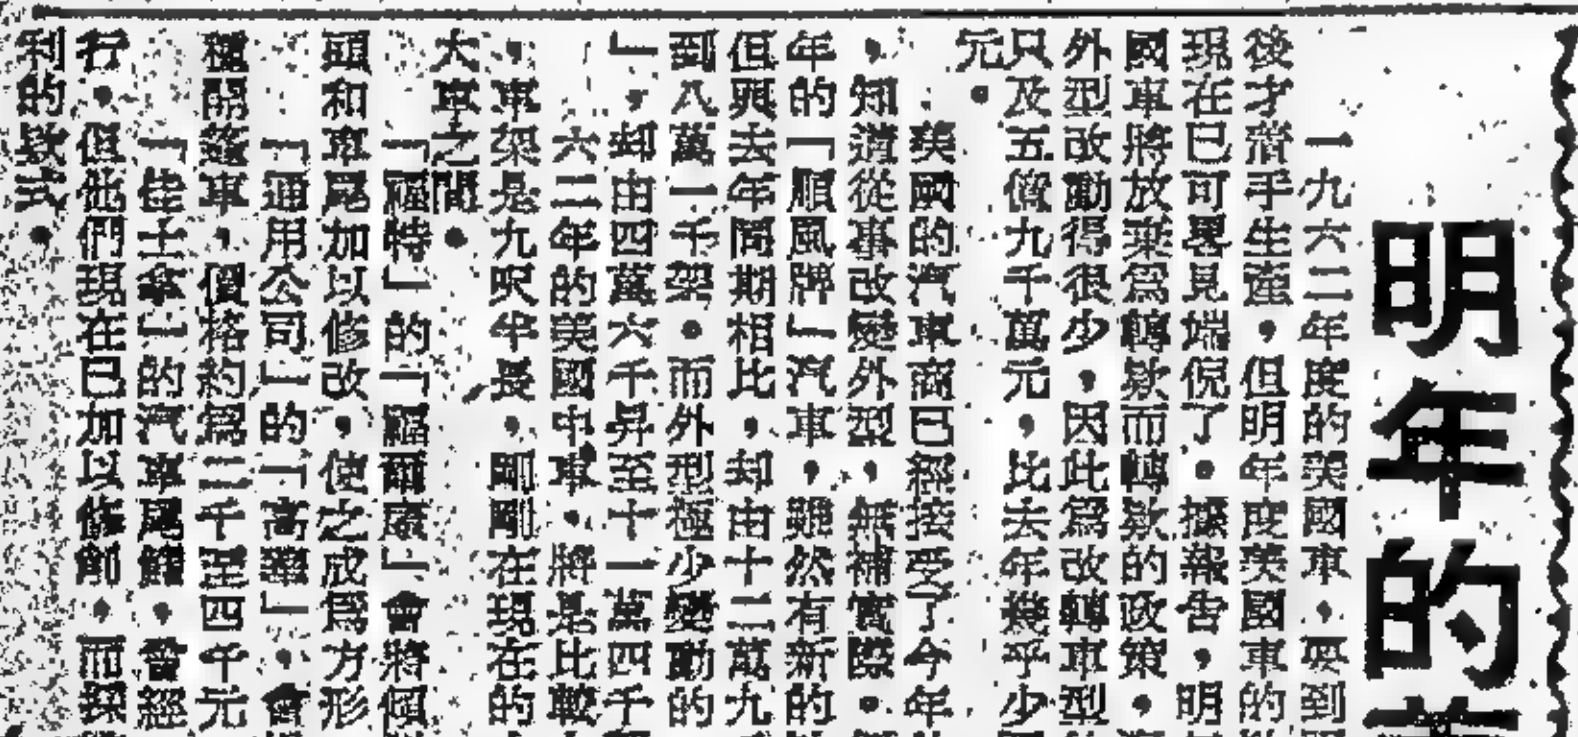 明年的
一九六二年度的美國車，要到
後才着手生產，但明年度美國車的
現在已可畧見端倪了。據報告，明
國車將放棄爲轉欵而轉欵的政策，
外型改動得很少，因此爲改轉車型
只及五億九千萬元，比去年幾乎少
元。
美國的汽車商已經接受了今年
，知道從事改變外型，無補實際。
年的「順風牌」汽車，雖然有新的
但與去年同期相比，却由十二萬九
到八萬一千架。而外型極少變動的
」，却由四萬六千昇至十一萬四千
六二年的美國中車，將是比較
，車架是九呎半長，剛剛在現在的
大車之間。
「福特」的「福爾康」會將傾
頭和車尾加以修改，使之成爲方形
「通用公司」的「高華」，會
種開篷車，價格約爲二千至四千元
「佳士拿」的汽車尾鰭，曾經
行，但他們現在已加以修削，而採
利的欵式。